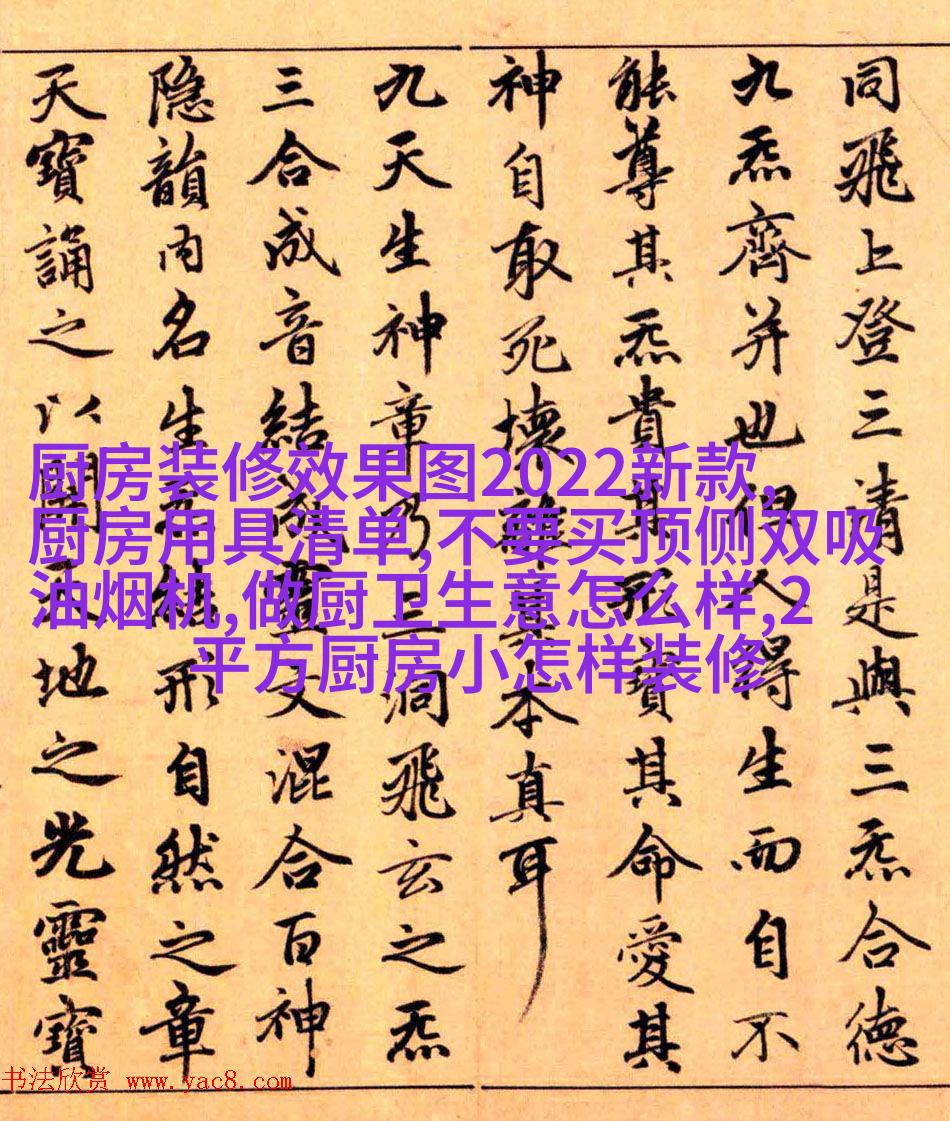 同飛上登三清是與三炁合德
九炁齊并也但人得生而自不
能尊其炁貴其形寶其命愛其
神自取死壞離其本真耳
九天生神章乃三洞飛玄之炁
三合成音結成靈文混合百神
隱韻內名生炁結形自然之章
天寶誦之以開天地之光靈寶
厨房装修效果图2022新款,
厨房用具清单,不要买顶侧双吸
油烟机,做厨卫生意怎么样,2
平方厨房小怎样装修
书法欣赏 www.yac8.com